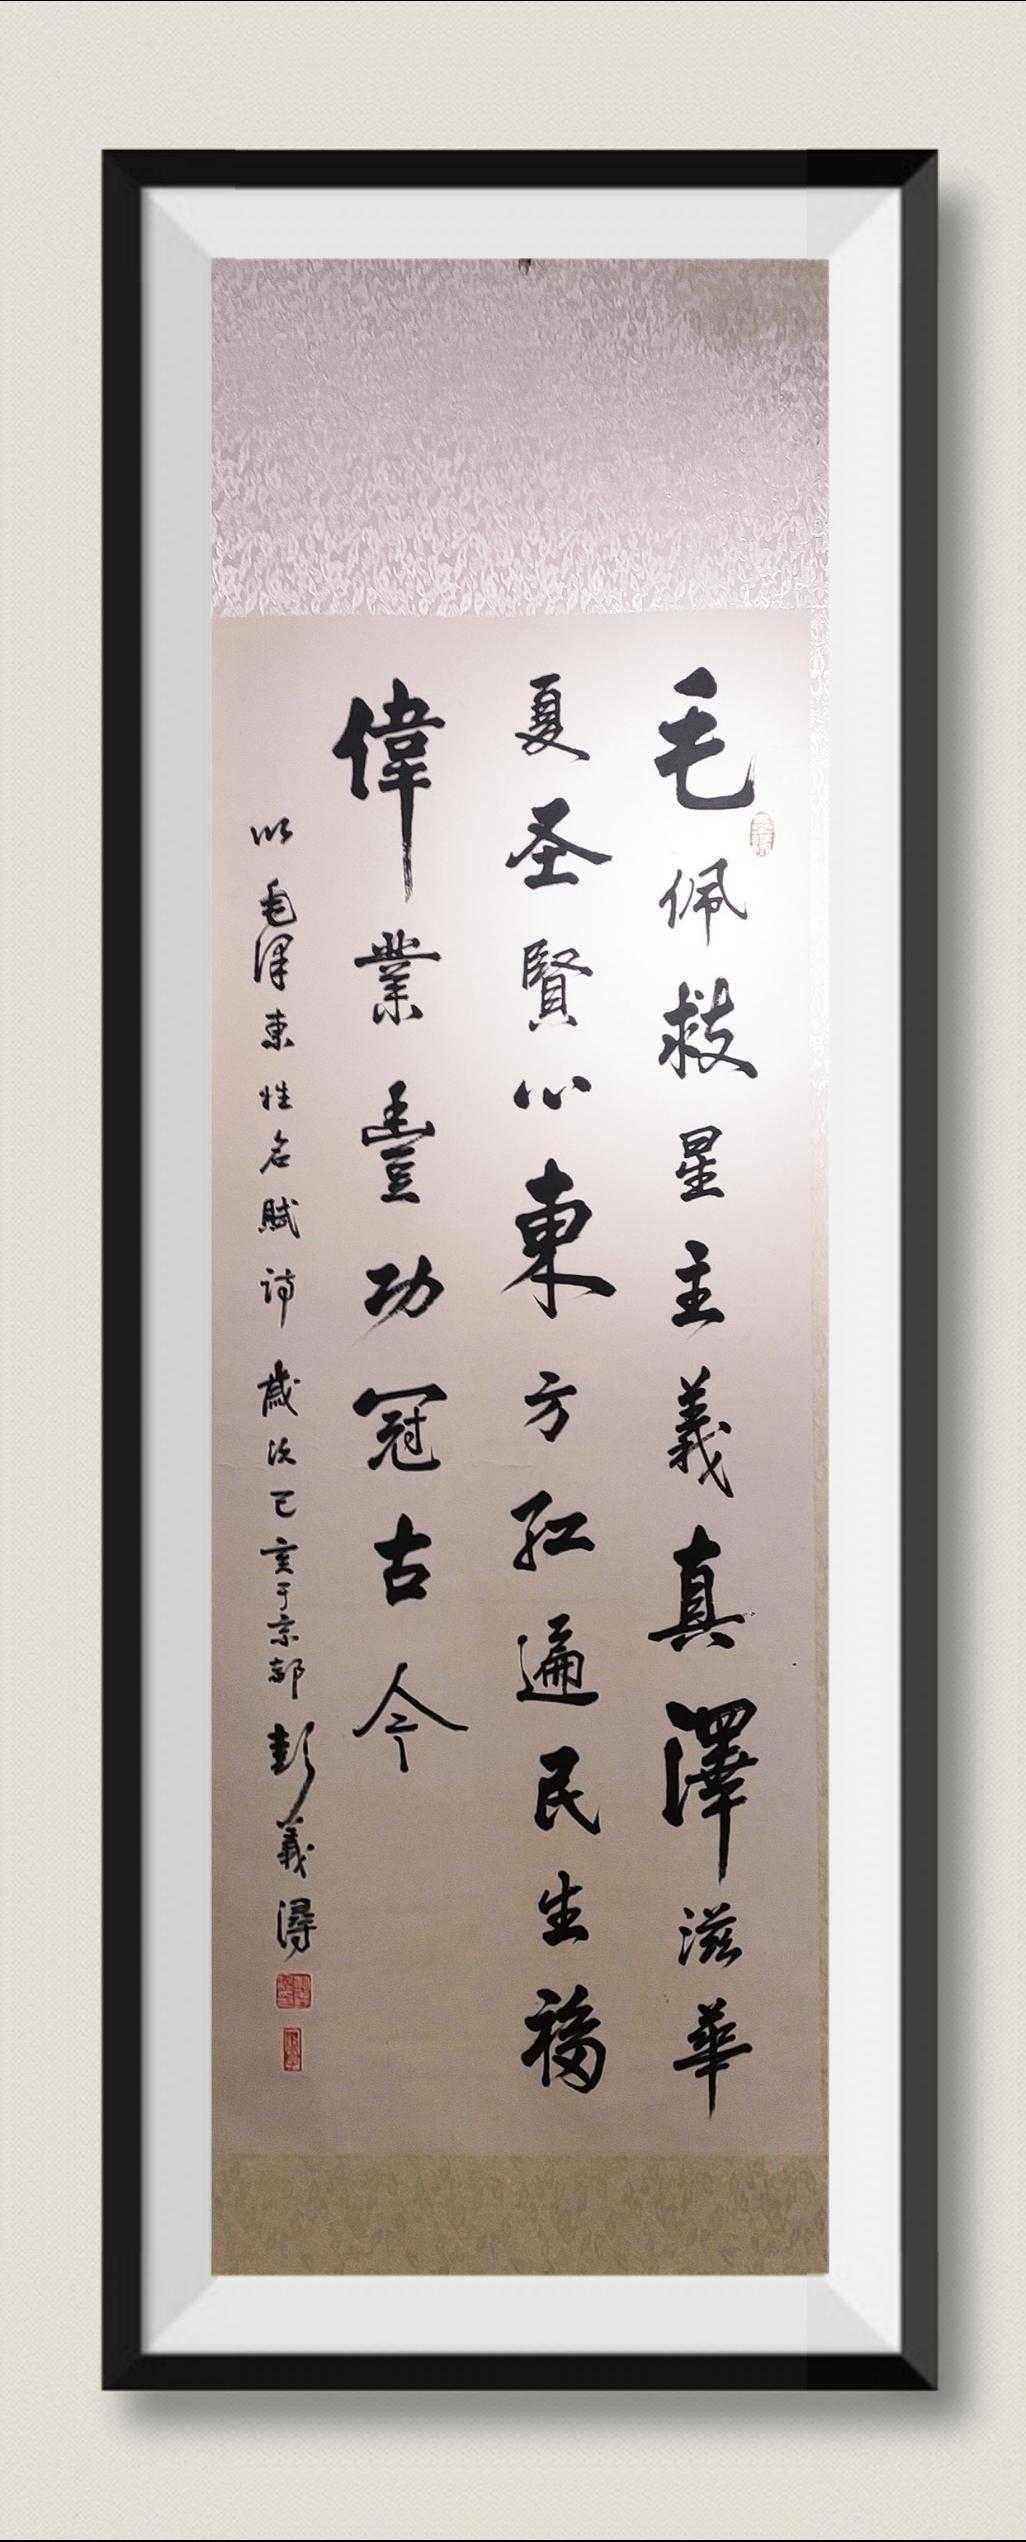 毛佩救星主義真澤滋華
夏圣賢心東方紅遍民生福
偉業豐功冠古今
以毛澤東性名賦詩歲次己亥于京都彭義潯